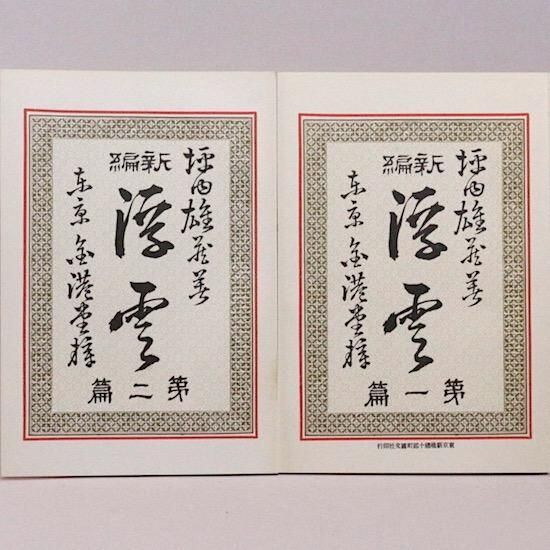 坪内雄蔵著
新編
浮雲
第一篇
東京 金港堂梓
國文社印行
坪内雄蔵著
新編
浮雲
第二篇
東京 金港堂梓